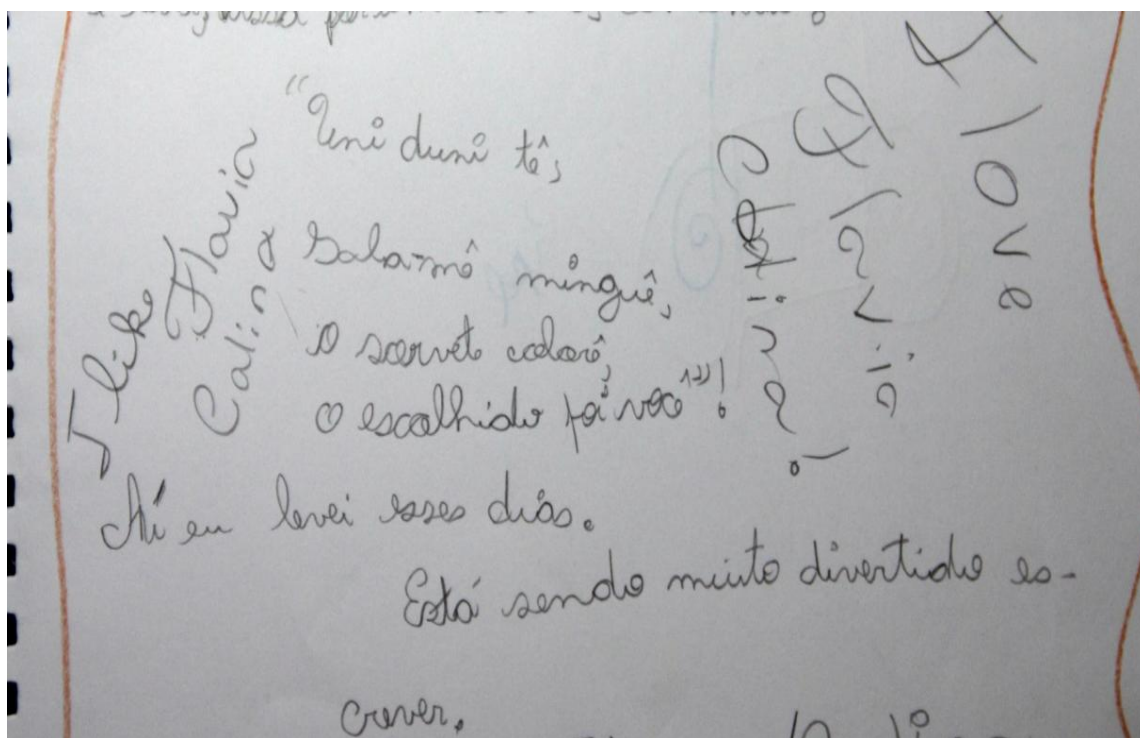 "Uni duni tê,
Salamê minguê,
O sorvete colorê,
O escolhido foi você"!
Aí eu levei esses dias.
Está sendo muito divertido es-
crever.
I like
Flavia
Calina
I love
Flavia
Calina!